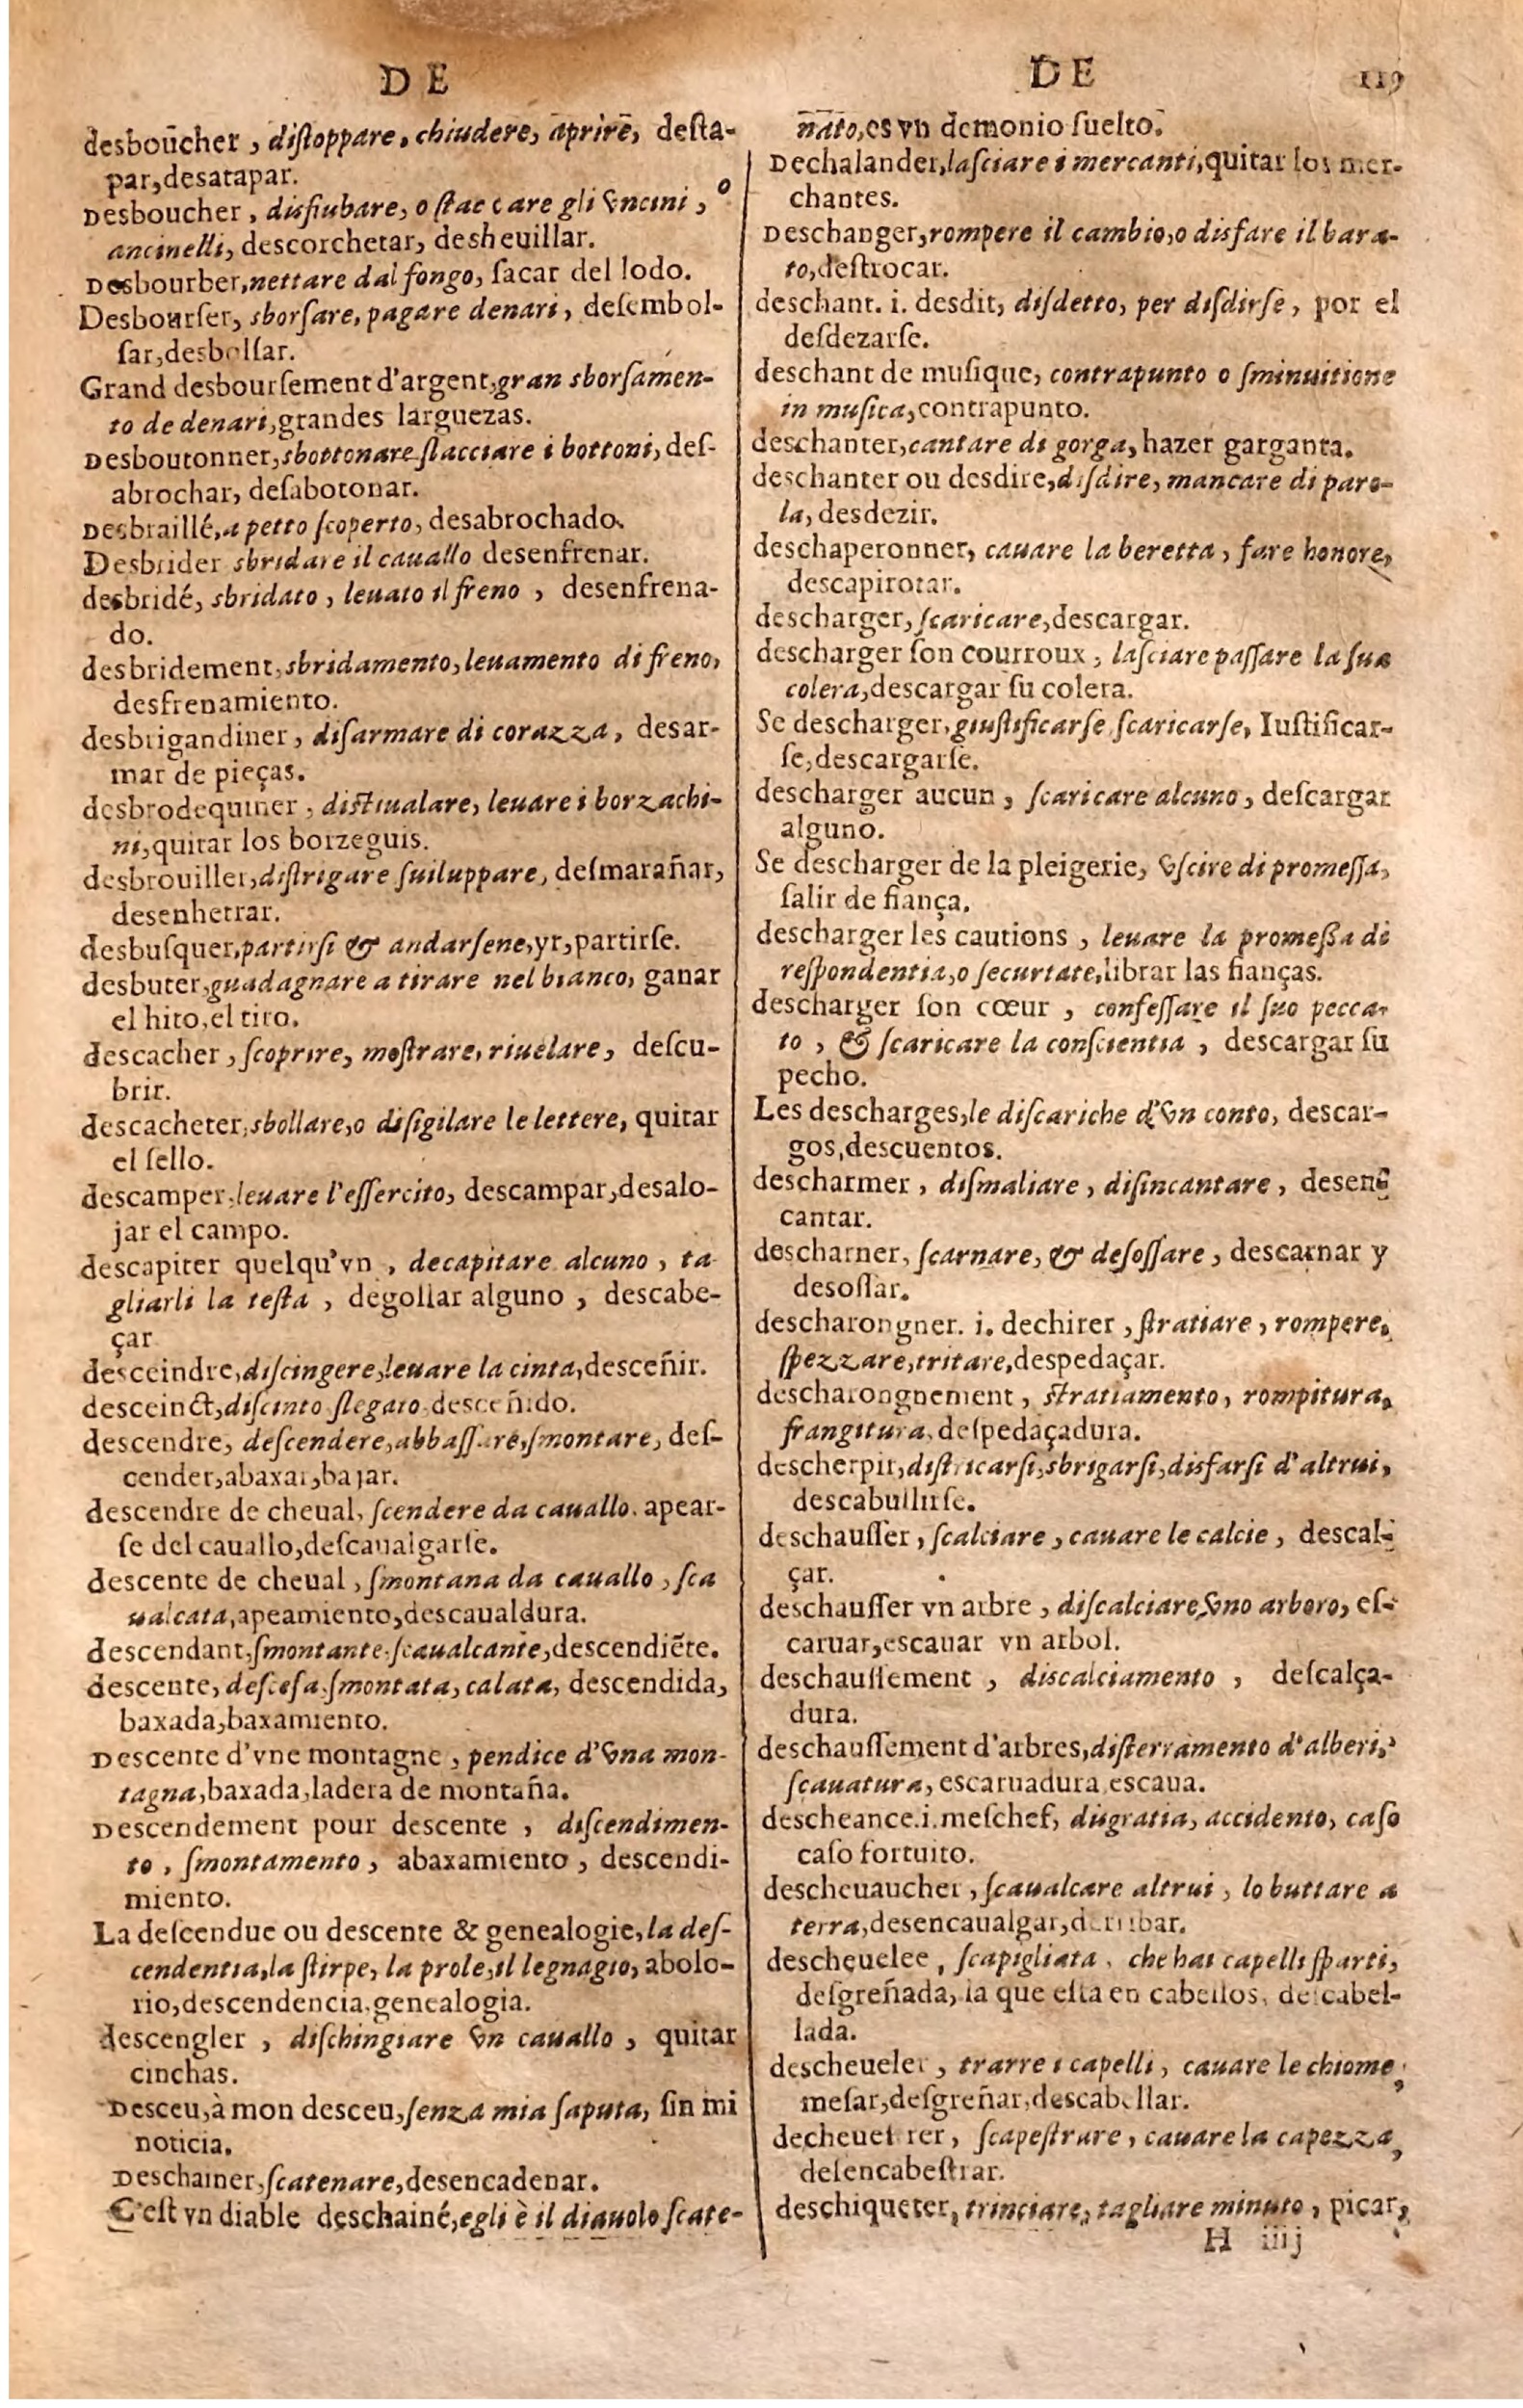 DE
desboucher, diſtoppare, chiudere, aprire, deſta-
par, desatapar.
Desboucher, disfiubare, o ſtaccare gli vncini, o
ancinelli, descorchetar, desheuillar.
Desbourber, nettare dal fongo, ſacar del lodo.
Desbourſer, sborſare, pagare denari, deſembol-
ſar, desbolſar.
Grand desbourſement d'argent, gran sborſamen-
to de denari, grandes larguezas.
Desboutonner, sbottonare ſlacciare i bottoni, deſ-
abrochar, deſabotonar.
Desbraillé, a petto ſcoperto, desabrochado.
Desbrider sbridare il cauallo desenfrenar.
desbridé, sbridato, leuato il freno, desenfrena-
do.
desbridement, sbridamento, leuamento di freno,
desfrenamiento.
desbrigandiner, diſarmare di corazza, desar-
mar de pieças.
desbrodequiner, diſtiualare, leuare i borzachi-
ni, quitar los borzeguis.
desbrouiller, diſtrigare ſuiluppare, deſmarañar,
desenhetrar.
desbuſquer, partirſi & andarſene, yr, partirſe.
desbuter, guadagnare a tirare nel bianco, ganar
el hito, el tiro.
descacher, ſcoprire, moſtrare, riuelare, deſcu-
brir.
descacheter, sbollare, o diſigilare le lettere, quitar
el ſello.
descamper, leuare l'eſſercito, descampar, desalo-
jar el campo.
descapiter quelqu'vn, decapitare alcuno, ta
gliarli la teſta, degollar alguno, descabe-
çar
desceindre, diſcingere, leuare la cinta, desceñir.
desceinct, diſcinto ſlegato desceñido.
descendre, deſcendere, abbaſſare, ſmontare, deſ-
cender, abaxar, bajar.
descendre de cheual, ſcendere da cauallo. apear-
ſe del cauallo, deſcaualgarſe.
descente de cheual, ſmontana da cauallo, ſca
ualcata, apeamiento, descaualdura.
descendant, ſmontante, ſcaualcante, descendiẽte.
descente, deſceſa, ſmontata, calata, descendida,
baxada, baxamiento.
Descente d'vne montagne, pendice d'vna mon-
tagna, baxada, ladera de montaña.
Descendement pour descente, diſcendimen-
to, ſmontamento, abaxamiento, descendi-
miento.
La deſcendue ou descente & genealogie, la deſ-
cendentia, la ſtirpe, la prole, il legnagio, abolo-
rio, descendencia, genealogia.
descengler, diſchingiare vn cauallo, quitar
cinchas.
Desceu, à mon desceu, ſenza mia ſaputa, ſin mi
noticia.
Deschainer, ſcatenare, desencadenar.
C'eſt vn diable deschainé, egli è il diauolo ſcate-
DE 119
nato, es vn demonio ſuelto.
Dechalander, laſciare i mercanti, quitar los mer-
chantes.
Deschanger, rompere il cambio, o disfare il bara-
to, deſtrocar.
deschant. i. desdit, diſdetto, per diſdirſe, por el
deſdezarſe.
deschant de muſique, contrapunto o ſminuitione
in muſica, contrapunto.
deschanter, cantare di gorga, hazer garganta.
deschanter ou desdire, diſdire, mancare di paro-
la, desdezir.
deschaperonner, cauare la beretta, fare honore,
descapirotar.
descharger, ſcaricare, descargar.
descharger ſon courroux, laſciare paſſare la ſua
colera, descargar ſu colera.
Se descharger, giuſtificarſe ſcaricarſe, Iuſtificar-
ſe, descargarſe.
descharger aucun, ſcaricare alcuno, deſcargar
alguno.
Se descharger de la pleigerie, vſcire di promeſſa,
ſalir de fiança.
descharger les cautions, leuare la promeßa di
reſpondentia, o ſecurtate, librar las fianças.
descharger ſon cœur, confeſſare il ſuo pecca-
to, & ſcaricare la conſcientia, descargar ſu
pecho.
Les descharges, le diſcariche d'vn conto, descar-
gos, descuentos.
descharmer, diſmaliare, diſincantare, desen
cantar.
descharner, ſcarnare, & deſoſſare, descarnar y
desoſſar.
descharongner. i. dechirer, ſtratiare, rompere,
ſpezzare, tritare, despedaçar.
descharongnement, ſtratiamento, rompitura,
frangitura, deſpedaçadura.
descherpir, diſtricarſi, sbrigarſi, disfarſi d'altrui,
descabullirſe.
deschauſſer, ſcalciare, cauare le calcie, descal-
çar.
deschauſſer vn arbre, diſcalciare vno arboro, eſ-
caruar, escauar vn arbol.
deschauſſement, discalciamento, deſcalça-
dura.
deschauſſement d'arbres, diſterramento d'alberi,
ſcauatura, escaruadura, escaua.
descheance. i. meſchef, diſgratia, accidento, caſo
caſo fortuito.
descheuaucher, ſcaualcare altrui, lo buttare a
terra, desencaualgar, derribar.
descheuelee, ſcapigliata, che hai capelli ſparti,
deſgreñada, la que eſta en cabellos, deſcabel-
lada.
descheueler, trarre i capelli, cauare le chiome,
meſar, deſgreñar, descabellar.
decheuetrer, ſcapeſtrare, cauare la capezza,
deſencabeſtrar.
deschiqueter, trinciare, tagliare minuto, picar,
H iiij